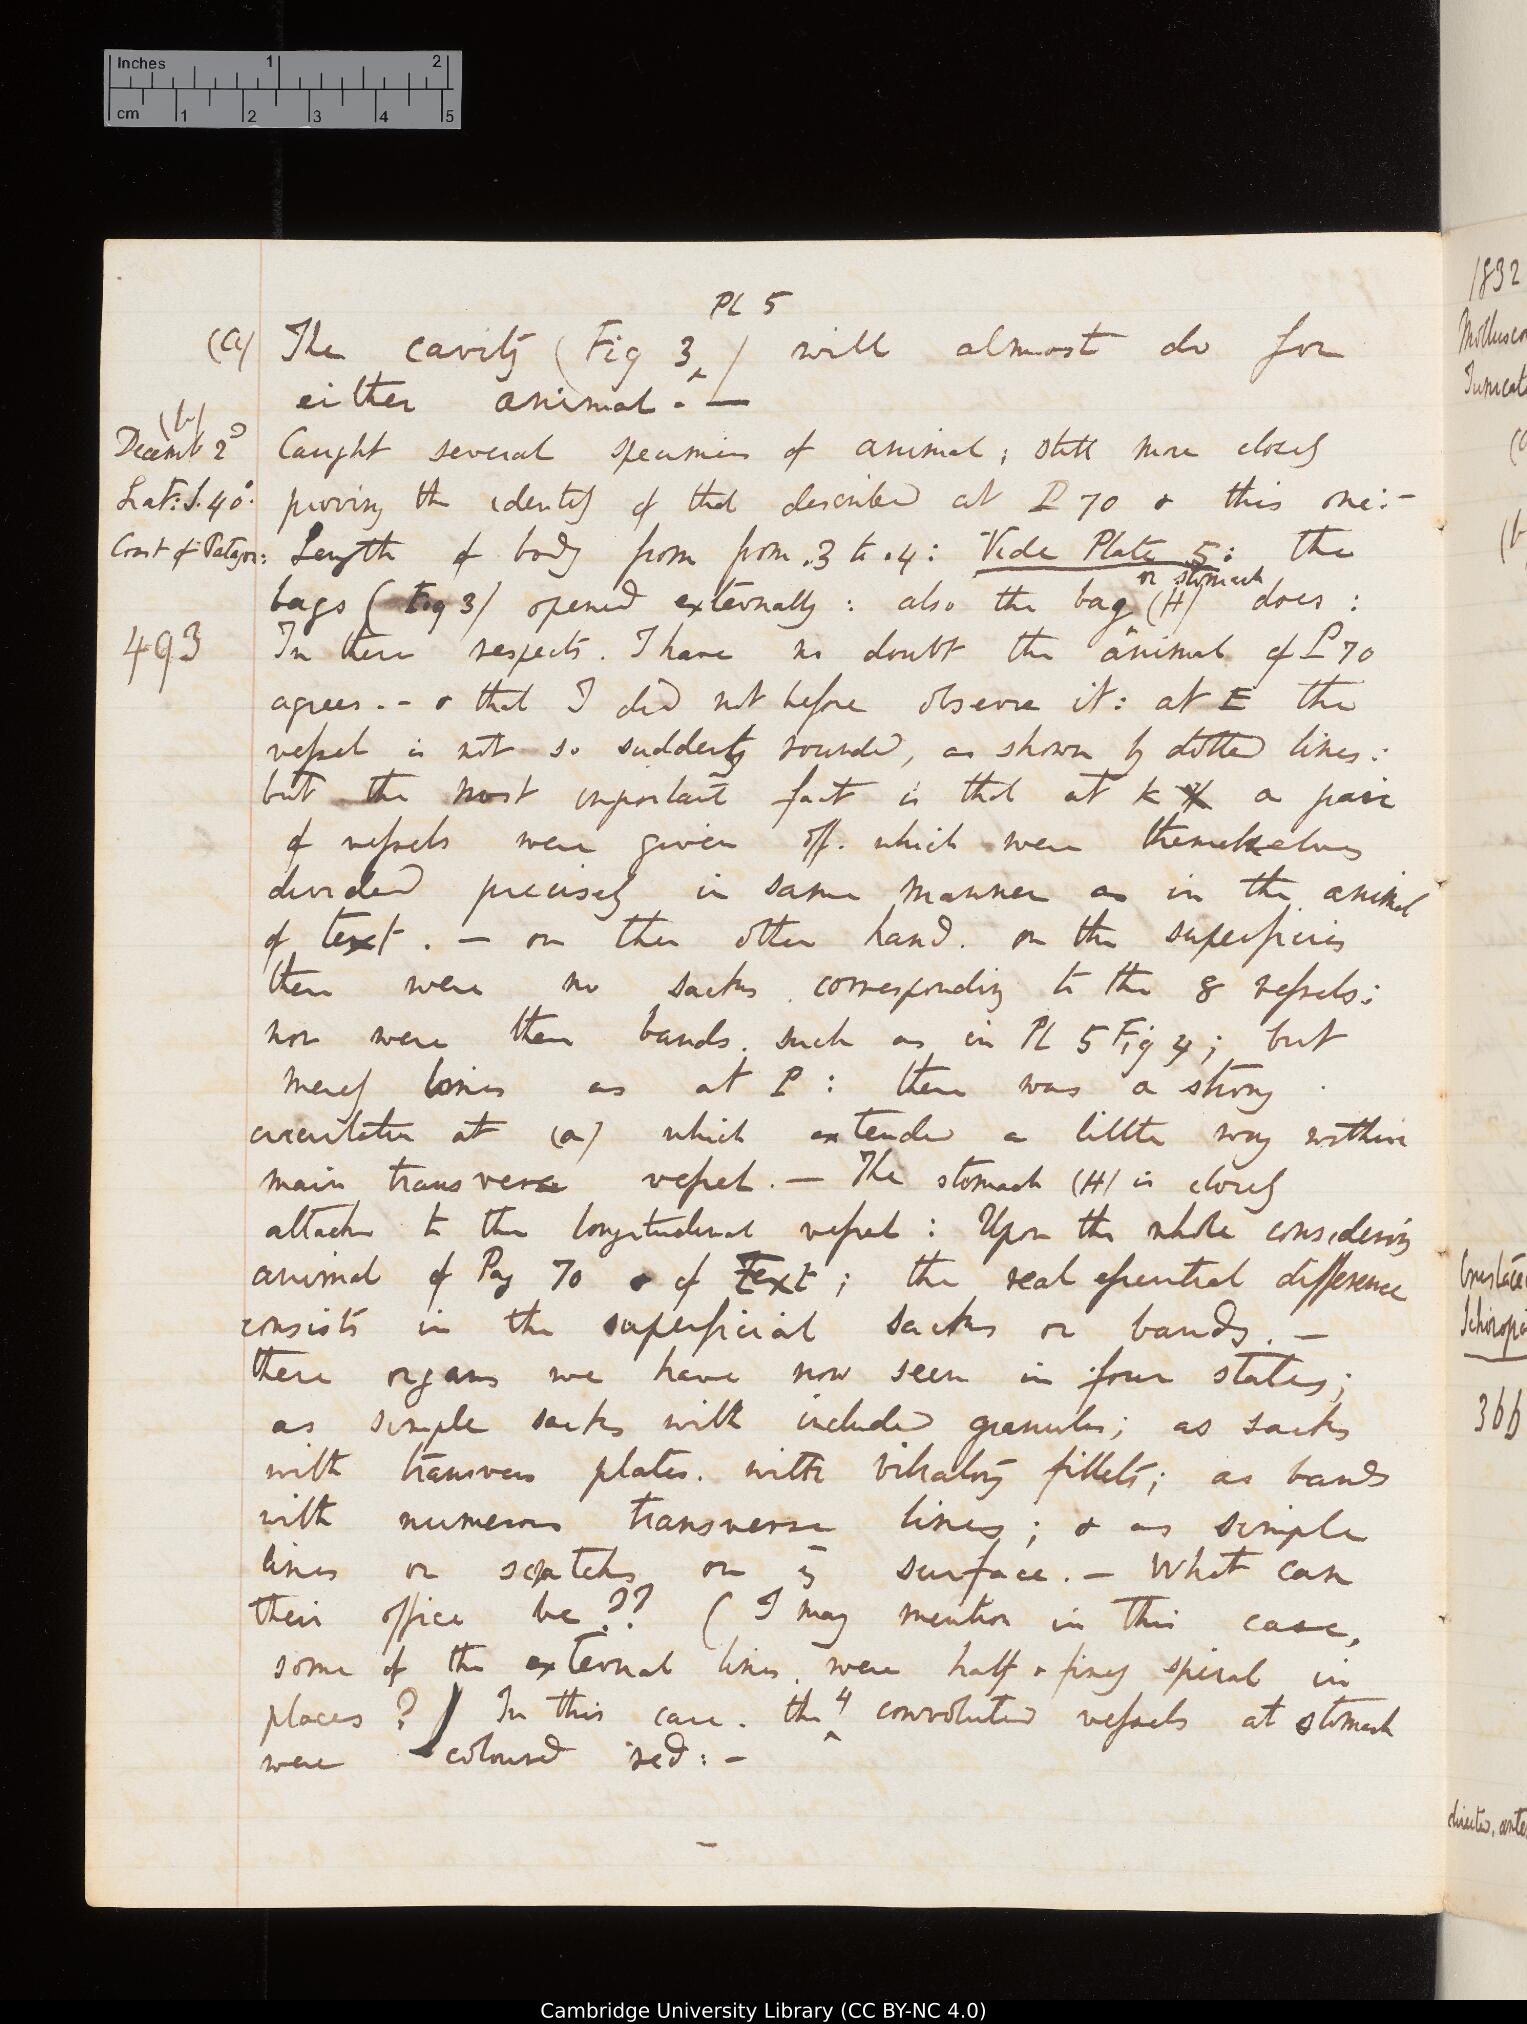 Inches 1 2
cm 1 2 3 4 5
Pl 5
(a) The cavity (Fig 3 ) will almost do for
either animal. —
(b)
Decemb 2d
Lat: S. 40°:
Coast of Patagon:
493
Caught several specimens of animal; still more closely
proving the identity of that described at P 70 & this one: –
Length of body from from .3 to .4: Vide Plate 5: the
bags (Fig 3) opened externally: also the bag or stomach (H) does:
In these respects. I have no doubt the animal of P 70
agrees. – & that I did not before observe it: at E the
vessel is not so suddenly rounded, as shown by dotted lines:
but the most important fact is that at K a pair
of vessels were given off. which were themselves
divided precisely in same manner as in the animal
of text. — on the other hand. on the superficies
there were no sacks corresponding to the 8 vessels:
nor were there bands. such as in Pl 5 Fig 4; but
merely lines as at P: there was a strong
circulation at (a) which extended a little way within
main transverse vessel. — The stomach (H) is closely
attached to the longitudinal vessel: Upon the whole considering
animal of Pag 70 & of Text; the real essential difference
consists in the superficial sacks or bands. —
these organs we have now seen in four states;
as simple sacks with included granules; as sacks
with transvers plates. with vibratory fillets; as bands
with numerous transverse lines; & as simple
lines or scratches on surface. — What can
their office be?? (I may mention in this case,
some of the external lines were half & finely spiral in
places?) In this case. the 4 convoluted vessels at stomach
were coloured red: –
–
1832
366
Cambridge University Library (CC BY-NC 4.0)